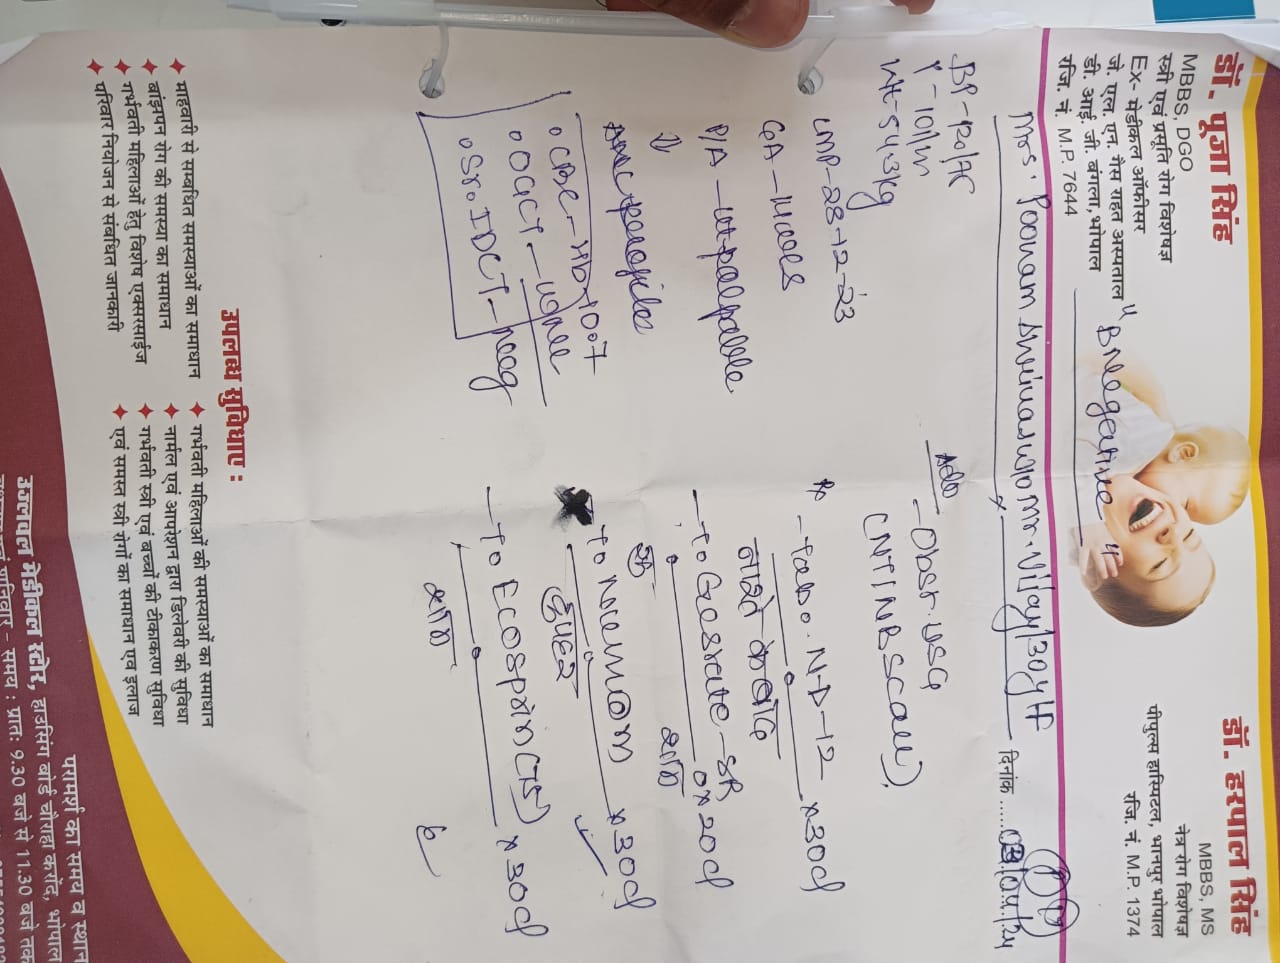 डॉ. पूजा सिंह
MBBS, DGO
स्त्री एवं प्रसूति रोग विशेषज्ञ
Ex- मेडीकल ऑफीसर
जे. एल. एन. गैस राहत अस्पताल
डी. आई. जी. बंगला, भोपाल
रजि. नं. M.P. 7644
"B Negative"
डॉ. हरपाल सिंह
MBBS, MS
नेत्र रोग विशेषज्ञ
पीपुल्स हास्पिटल, भानपुर भोपाल
रजि. नं. M.P. 1374
Mrs. Poonam Shriwas w/o Mr. Vijay/30y/F
दिनांक
BP-120/
P-101/m
Wt-54.3kg
LMP-28-12-23
GA-
P/A-
Adv
-Obsr. USG
(NT/NB Scan)
Rx
-Tab. N-D-12 x30d
-To Gestrate-SR x20d
रात्रि
To x30d
दुपहर
-To Ecosprin(75) x30d
रात्रि
ANC profiles
CBC-Hb-
OGCT-
Sr. IDCT-neg
उपलब्ध सुविधाएं :
माहवारी से सम्बंधित समस्याओं का समाधान
बांझपन रोग की समस्या का समाधान
गर्भवती महिलाओं हेतु विशेष एक्सरसाईज
परिवार नियोजन से संबंधित जानकारी
गर्भवती महिलाओं की समस्याओं का समाधान
नार्मल एवं आपरेशन द्वारा डिलेवरी की सुविधा
गर्भवती स्त्री एवं बच्चों की टीकाकरण सुविधा
एवं समस्त स्त्री रोगों का समाधान एवं इलाज
परामर्श का समय व स्थान
मेडीकल स्टोर, हाउसिंग बोर्ड चौराहा करोंद, भोपाल
समय : प्रातः 9.30 बजे से 11.30 बजे तक